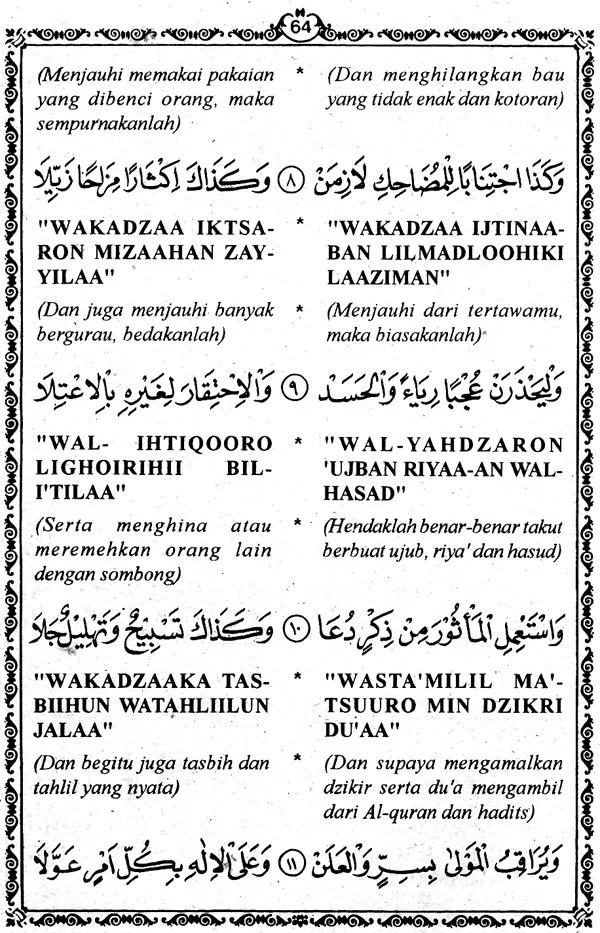 64
(Menjauhi memakai pakaian * (Dan menghilangkan bau
yang dibenci orang, maka yang tidak enak dan kotoran)
sempurnakanlah)
وَكَذَا اجْتِنَابًا لِلْمُضَاحِكِ لَازِمَنْ ٨ وَكَذَاكَ اِكْثَارًا مِزَاحًا زَيِّلَا
"WAKADZAA IKTSA- * "WAKADZAA IJTINAA-
RON MIZAAHAN ZAY- BAN LILMADLOOHIKI
YILAA" LAAZIMAN"
(Dan juga menjauhi banyak * (Menjauhi dari tertawamu,
bergurau, bedakanlah) maka biasakanlah)
وَلْيَحْذَرَنْ عُجْبًا رِيَاءً وَالْحَسَدْ ٩ وَالْاِحْتِقَارَ لِغَيْرِهِ بِالْاِعْتِلَا
"WAL- IHTIQOORO * "WAL-YAHDZARON
LIGHOIRIHII BIL- 'UJBAN RIYAA-AN WAL-
I'TILAA" HASAD"
(Serta menghina atau * (Hendaklah benar-benar takut
meremehkan orang lain berbuat ujub, riya' dan hasud)
dengan sombong)
وَاسْتَعْمِلِ الْمَأْثُوْرَ مِنْ ذِكْرٍ دُعَا ١٠ وَكَذَاكَ تَسْبِيْحٌ وَتَهْلِيْلٌ جَلَا
"WAKADZAAKA TAS- * "WASTA'MILIL MA'-
BIIHUN WATAHLIILUN TSUURO MIN DZIKRI
JALAA" DU'AA"
(Dan begitu juga tasbih dan * (Dan supaya mengamalkan
tahlil yang nyata) dzikir serta du'a mengambil
dari Al-quran dan hadits)
وَيُرَاقِبُ الْمَوْلٰى بِسِرٍّ وَالْعَلَنْ ١١ وَعَلَى الْاِلٰهِ بِكُلِّ اَمْرٍ عَوَّلَا